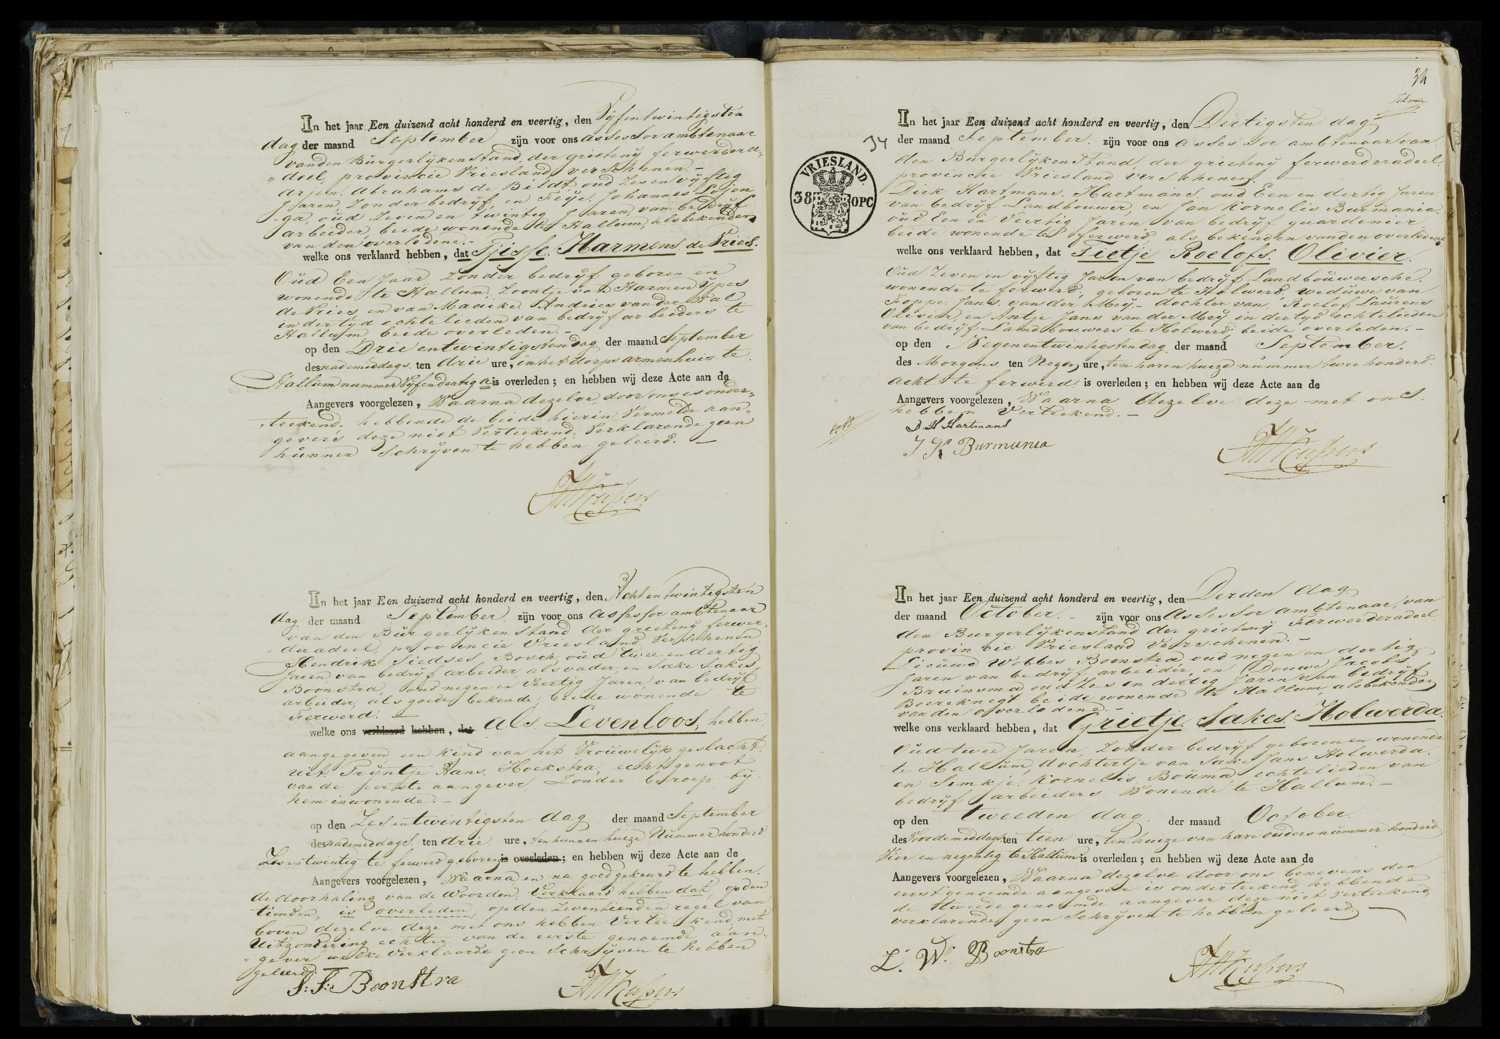 In het jaar Een duizend acht honderd en veertig, den Vyfentwintigsten
dag der maand September zijn voor ons assessor ambtenaar
van den Burgerlyken Stand der grieteny ferwerdera-
deel, provincie Vriesland verschenen
Arjen Abrahams de Bildt, oud zes en vyftig
Jaren, zonder bedryf en Johannes
oud Zeven en twintig Jaren, van bedryf
arbeider, beide wonende te Hallum, als bekenden
van den overledene.-
welke ons verklaard hebben, dat Tjisse Harmens de Vries.
Oud Een Jaar, zonder bedryf, geboren en
wonende te Hallum, Zoontje van Harmen Ypes
de Vries, en van Maaike Andries van der Wal
in der tyd echtelieden van bedryf arbeiders te
Hallum beide overleden.-
op den Drie entwintigsten dag der maand September
des nademiddags ten drie ure, in het dorps armenhuis te
Hallum nummer Vyfendertig a is overleden; en hebben wij deze Acte aan de
Aangevers voorgelezen, Waarna dezelve door ons is onder-
teekend, hebbende de beide hierin vermelde aan-
gevers deze niet verteekend, verklarende geen
kunnen Schryven te hebben geleerd.-
In het jaar Een duizend acht honderd en veertig, den Acht entwintigsten
dag der maand September zijn voor ons assessor ambtenaar
van den Burgerlyken Stand der grieteny ferwer-
deradeel, provincie Vriesland Verschenen
Hendrik Siedses oud twee en dertig
Jaren van bedryf arbeider als vader, en Sake Sakes
Boonstra, oud negen en veertig Jaren, van bedryf
arbeider, als goede bekende, beide wonende te
ferwerd.
welke ons verklaard hebben, dat als Levenloos, hebben
aangegeven een kind van het Vrouwelyk geslacht
uit Tryntje Hans Hoekstra, echtgenoot
van de eerste aangever, Zonder beroep by
hem inwonende.-
op den Zes en twintigsten dag der maand September
des nademiddags ten drie ure, ten hunnen huize Nummer honderd
Zes en twentig te ferwerd geboren is overleden; en hebben wij deze Acte aan de
Aangevers voorgelezen, Waarna en na goedgekeurd te hebben
de doorhaling van de woorden, verklaard hebben dat op den
tienden, is overleden, op den Zeventienden regel van
boven dezelve deze met ons hebben Verteekend, met
Uitzondering echter van de eerste genoemde aan-
gever welke verklaarde geen Schryven te hebben
geleerd.
S: S: Boonstra
34
In het jaar Een duizend acht honderd en veertig, den Dertigsten dag
34
der maand September. zijn voor ons assessor ambtenaar van
den Burgerlyken Stand der grieteny ferwerderadeel,
provincie Vriesland verschenen
VRIESLAND.
38 OPC
Dirk Hartmans Hartmans, oud Een en dertig Jaren
van bedryf Landbouwer, en Jan Kornelis Burmania,
oud Een en Veertig Jaren van bedryf guardenier
beide wonende te ferwerd als bekenden van den overledene
welke ons verklaard hebben, dat Tietje Roelofs Olivier.
Oud Zeven en vyftig Jaren van bedryf Landbouwersche
wonende te ferwerd, geboren te Holwerd, weduwe van
Foppe Jans van der Meij, dochter van Roelof Lourens
Olivier, en Antje Jans van der Meij in der tyd echtelieden
van bedryf Landbouwers te Holwerd beide overleden.-
op den Negenentwintigsten dag der maand September.
des Morgens ten Negen ure, ten haren huize nummer twee honderd
acht te ferwerd is overleden; en hebben wij deze Acte aan de
Aangevers voorgelezen, Waarna dezelve deze met ons
hebben Verteekend.-
D H Hartmans
J Ks Burmania
In het jaar Een duizend acht honderd en veertig, den Derden dag
der maand October.- zijn voor ons assessor ambtenaar van
den Burgerlyken Stand der grieteny Ferwerderadeel
provincie Vriesland Verschenen.-
Lieuwe Wobbes Boonstra oud negen en dertig
Jaren van bedryf arbeider en Douwe Jacobs
Bruinsma oud zes en dertig Jaren van bedryf
Boereknegt beide wonende te Hallum, als bekenden
van den overledene.-
welke ons verklaard hebben, dat Grietje Sakes Holwerda.
Oud twee Jaren, Zonder bedryf geboren en wonende
te Hallum, dochtertje van Sake Jans Holwerda,
en Kornelis Bouma echtelieden van
bedryf arbeiders Wonende te Hallum.-
op den tweeden dag der maand October.
des Voordemiddags ten tien ure, ten huize van hare ouders nummer honderd
Vier en negentig te Hallum is overleden; en hebben wij deze Acte aan de
Aangevers voorgelezen, Waarna dezelve door ons benevens den
eerst genoemde aangever is onderteekend, hebbende
de tweede genoemde aangever deze niet verteekend,
verklarende geen Schryven te hebben geleerd.
L. W. Boonstra